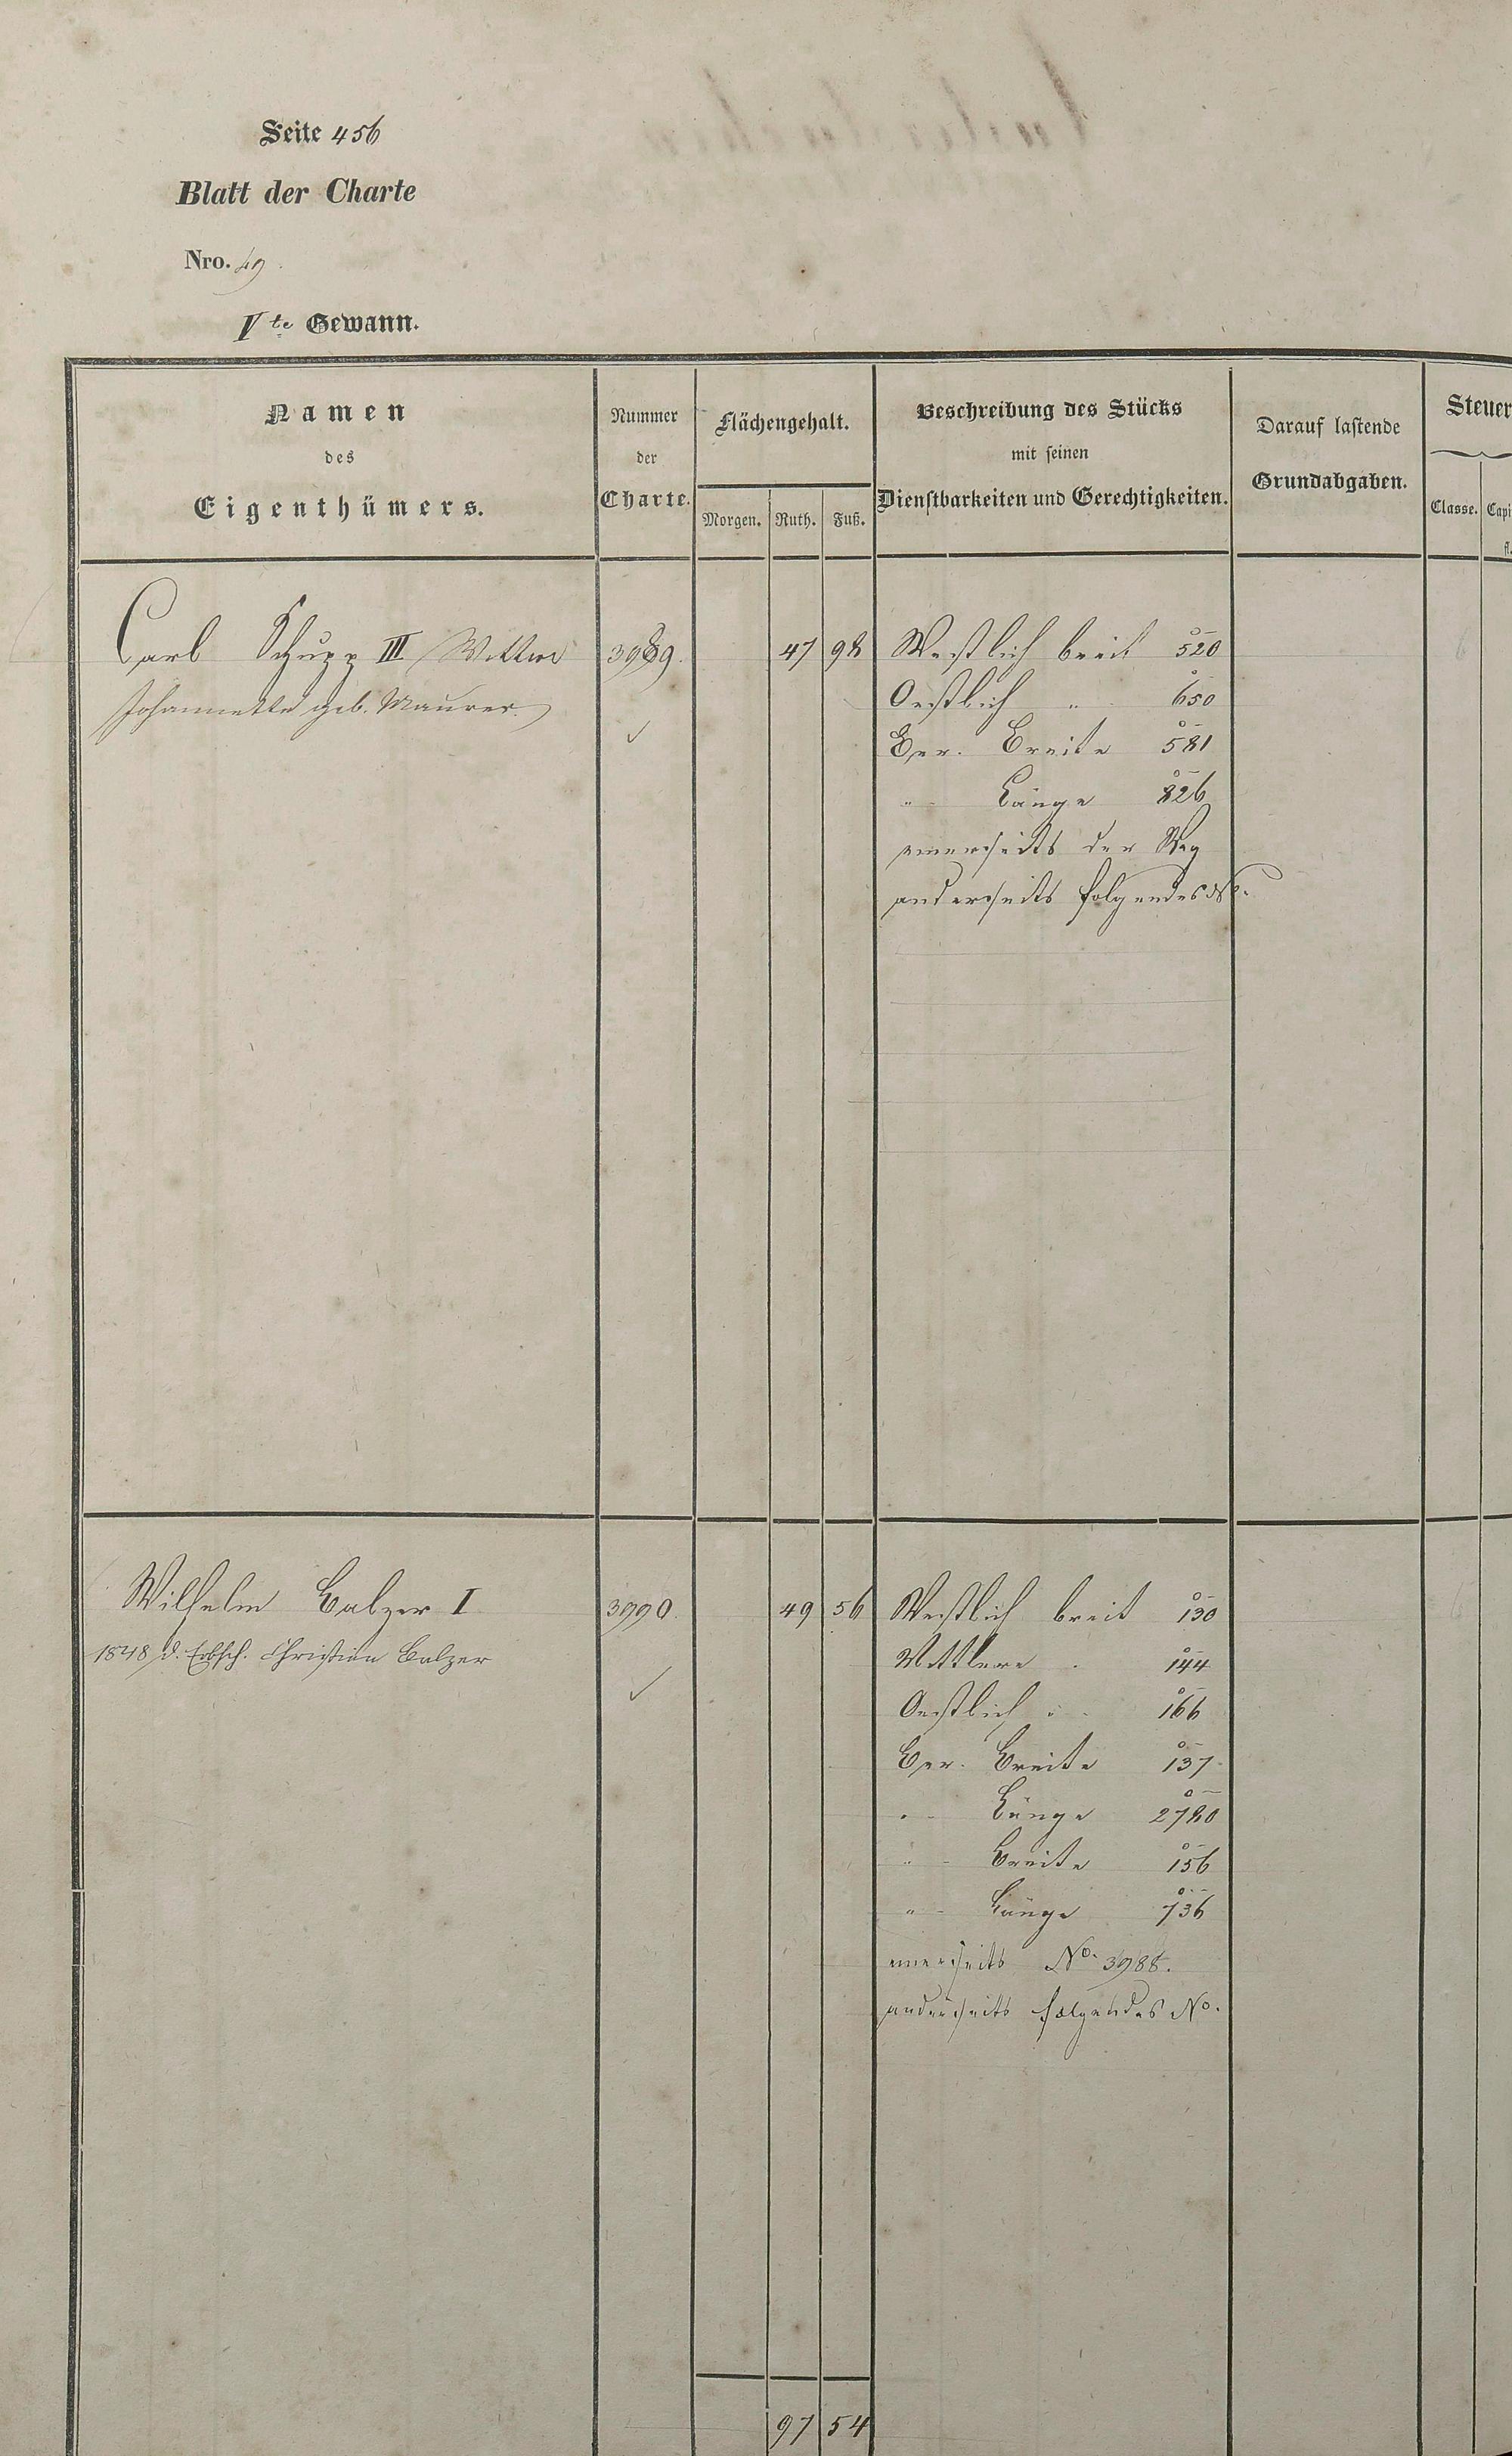 Seite 456
Blatt der Charte
Nro. 49.
Vte Gewann.
Namen
des
Eigenthümers.
Nummer
der
Charte.
Flächengehalt.
Morgen. Ruth. Fuß.
Beschreibung des Stücks
mit seinen
Dienstbarkeiten und Gerechtigkeiten.
Darauf lastende
Grundabgaben.
Steuer
Classe. Capi
fl.
Carl Schupp III Wittwe 3989. 47 98 Westlich breit 520
Johannette geb. Maurer. Oestlich " 650
Ber. Breite 581
" Länge 826
einerseits der Weg
anderseits folgendes No.
Wilhelm Balzer I 3990. 49 56 Westlich breit 130
1848 d. Erbsch. Christian Balzer Mittlere 144
Oestlich " 166
Ber. Breite 137
" Länge 2780
" Breite 156
" Länge 736
einerseits No. 3988.
anderseits folgendes No.
97 54